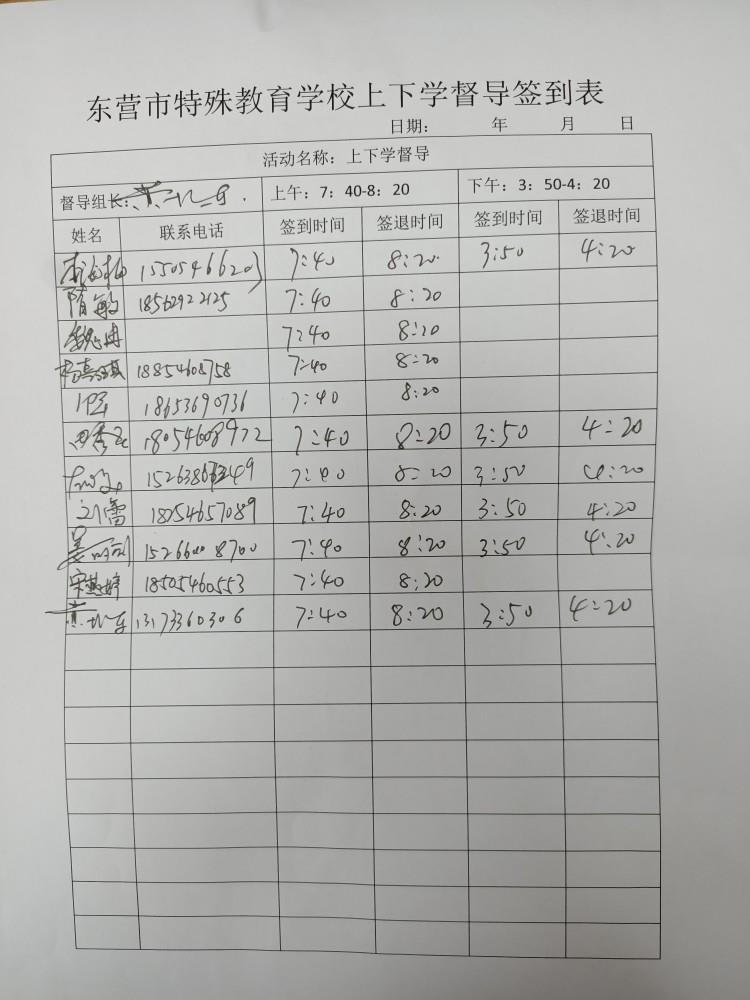 东营市特殊教育学校上下学督导签到表
日期： 年 月 日
活动名称：上下学督导
督导组长： 上午：7：40-8：20 下午：3：50-4：20
姓名 联系电话 签到时间 签退时间 签到时间 签退时间
15505466203 7:40 8:20 3:50 4:20
隋敏 18562922125 7:40 8:20
7:40 8:20
18854608758 7:40 8:20
18653690736 7:40 8:20
18054608972 7:40 8:20 3:50 4:20
7:40 8:20 3:50 4:20
刘蕾 18054657089 7:40 8:20 3:50 4:20
7:40 8:20 3:50 4:20
宋慧婷 18505460553 7:40 8:20
13173360306 7:40 8:20 3:50 4:20